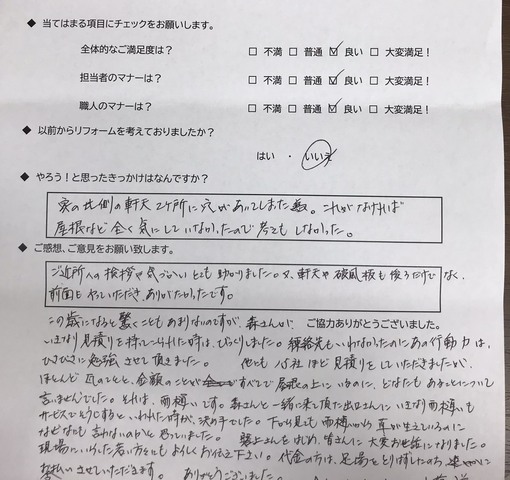 ◆ 当てはまる項目にチェックをお願いします。
全体的なご満足度は? □ 不満 □ 普通 ☑ 良い □ 大変満足!
担当者のマナーは? □ 不満 □ 普通 ☑ 良い □ 大変満足!
職人のマナーは? □ 不満 □ 普通 ☑ 良い □ 大変満足!
◆ 以前からリフォームを考えておりましたか?
はい ・ いいえ
◆ やろう!と思ったきっかけはなんですか?
家の北側の軒天2ヶ所に穴があいてしまった。これがなければ
屋根など全く気にしていなかったので考えもしなかった。
◆ ご感想、ご意見をお願い致します。
ご近所への挨拶や気づかいとても助かりました。又、軒天や破風板も後ろだけでなく、
前面もやっていただき、ありがたかったです。
この歳になると驚くこともあまりないのですが、森さんが、
ご協力ありがとうございました。
いきなり見積りを持ってこられた時は、びっくりしました。連絡先もいわなかったのにあの行動力は、
勉強させて頂きました。 他にも八社ほど見積りをしていただきましたが、
ほとんど瓦のことと、金額のことがすべてで屋根の上にいるのに、どなたもあることについて
言いませんでした。それは、雨樋いです。森さんと一緒に来て頂た出口さんにいきなり雨樋いも
サービスでそうじするといわれた時が、決め手でした。下から見ても雨樋いから草が生えているのに
なぜだれも言わないのかと思っていました。 皆さんに大変お世話になりました。
現場にいらした若い方々にもよろしくお伝え下さい。代金の方は、足場をとりはずしたのち速やかに
お払いさせていただきます。 ありがとうございました。